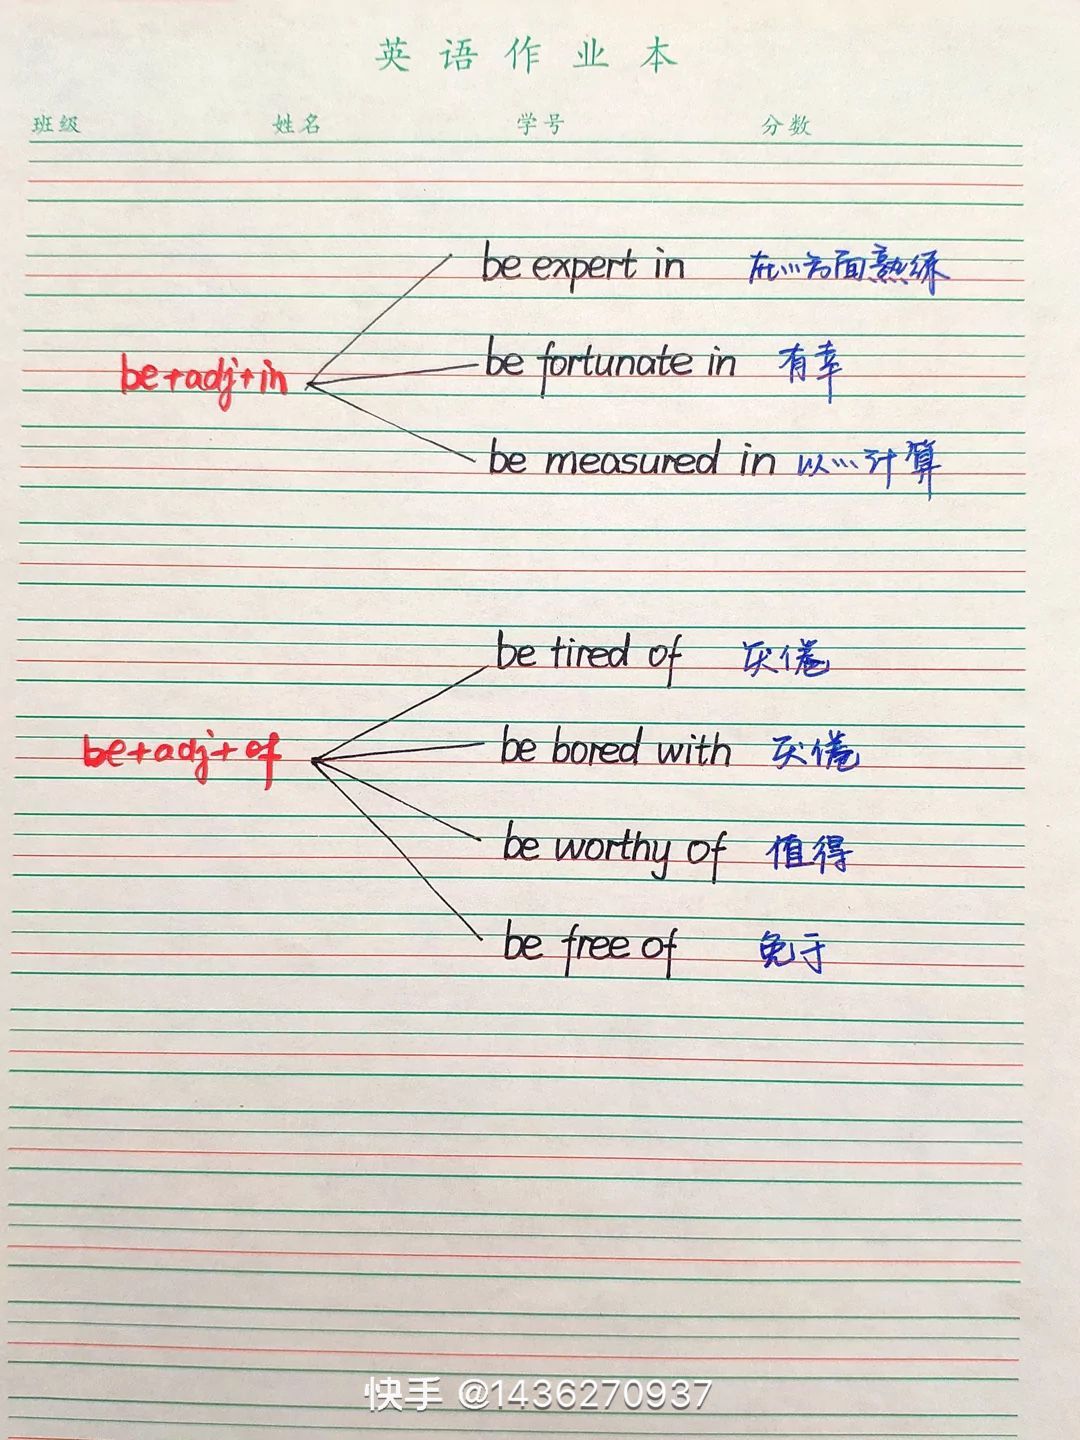 英语作业本
班级 姓名 学号 分数
be expert in 在…方面熟练
be+adj+in be fortunate in 有幸
be measured in 以…计算
be tired of 厌倦
be+adj+of be bored with 厌倦
be worthy of 值得
be free of 免于
快手 @1436270937